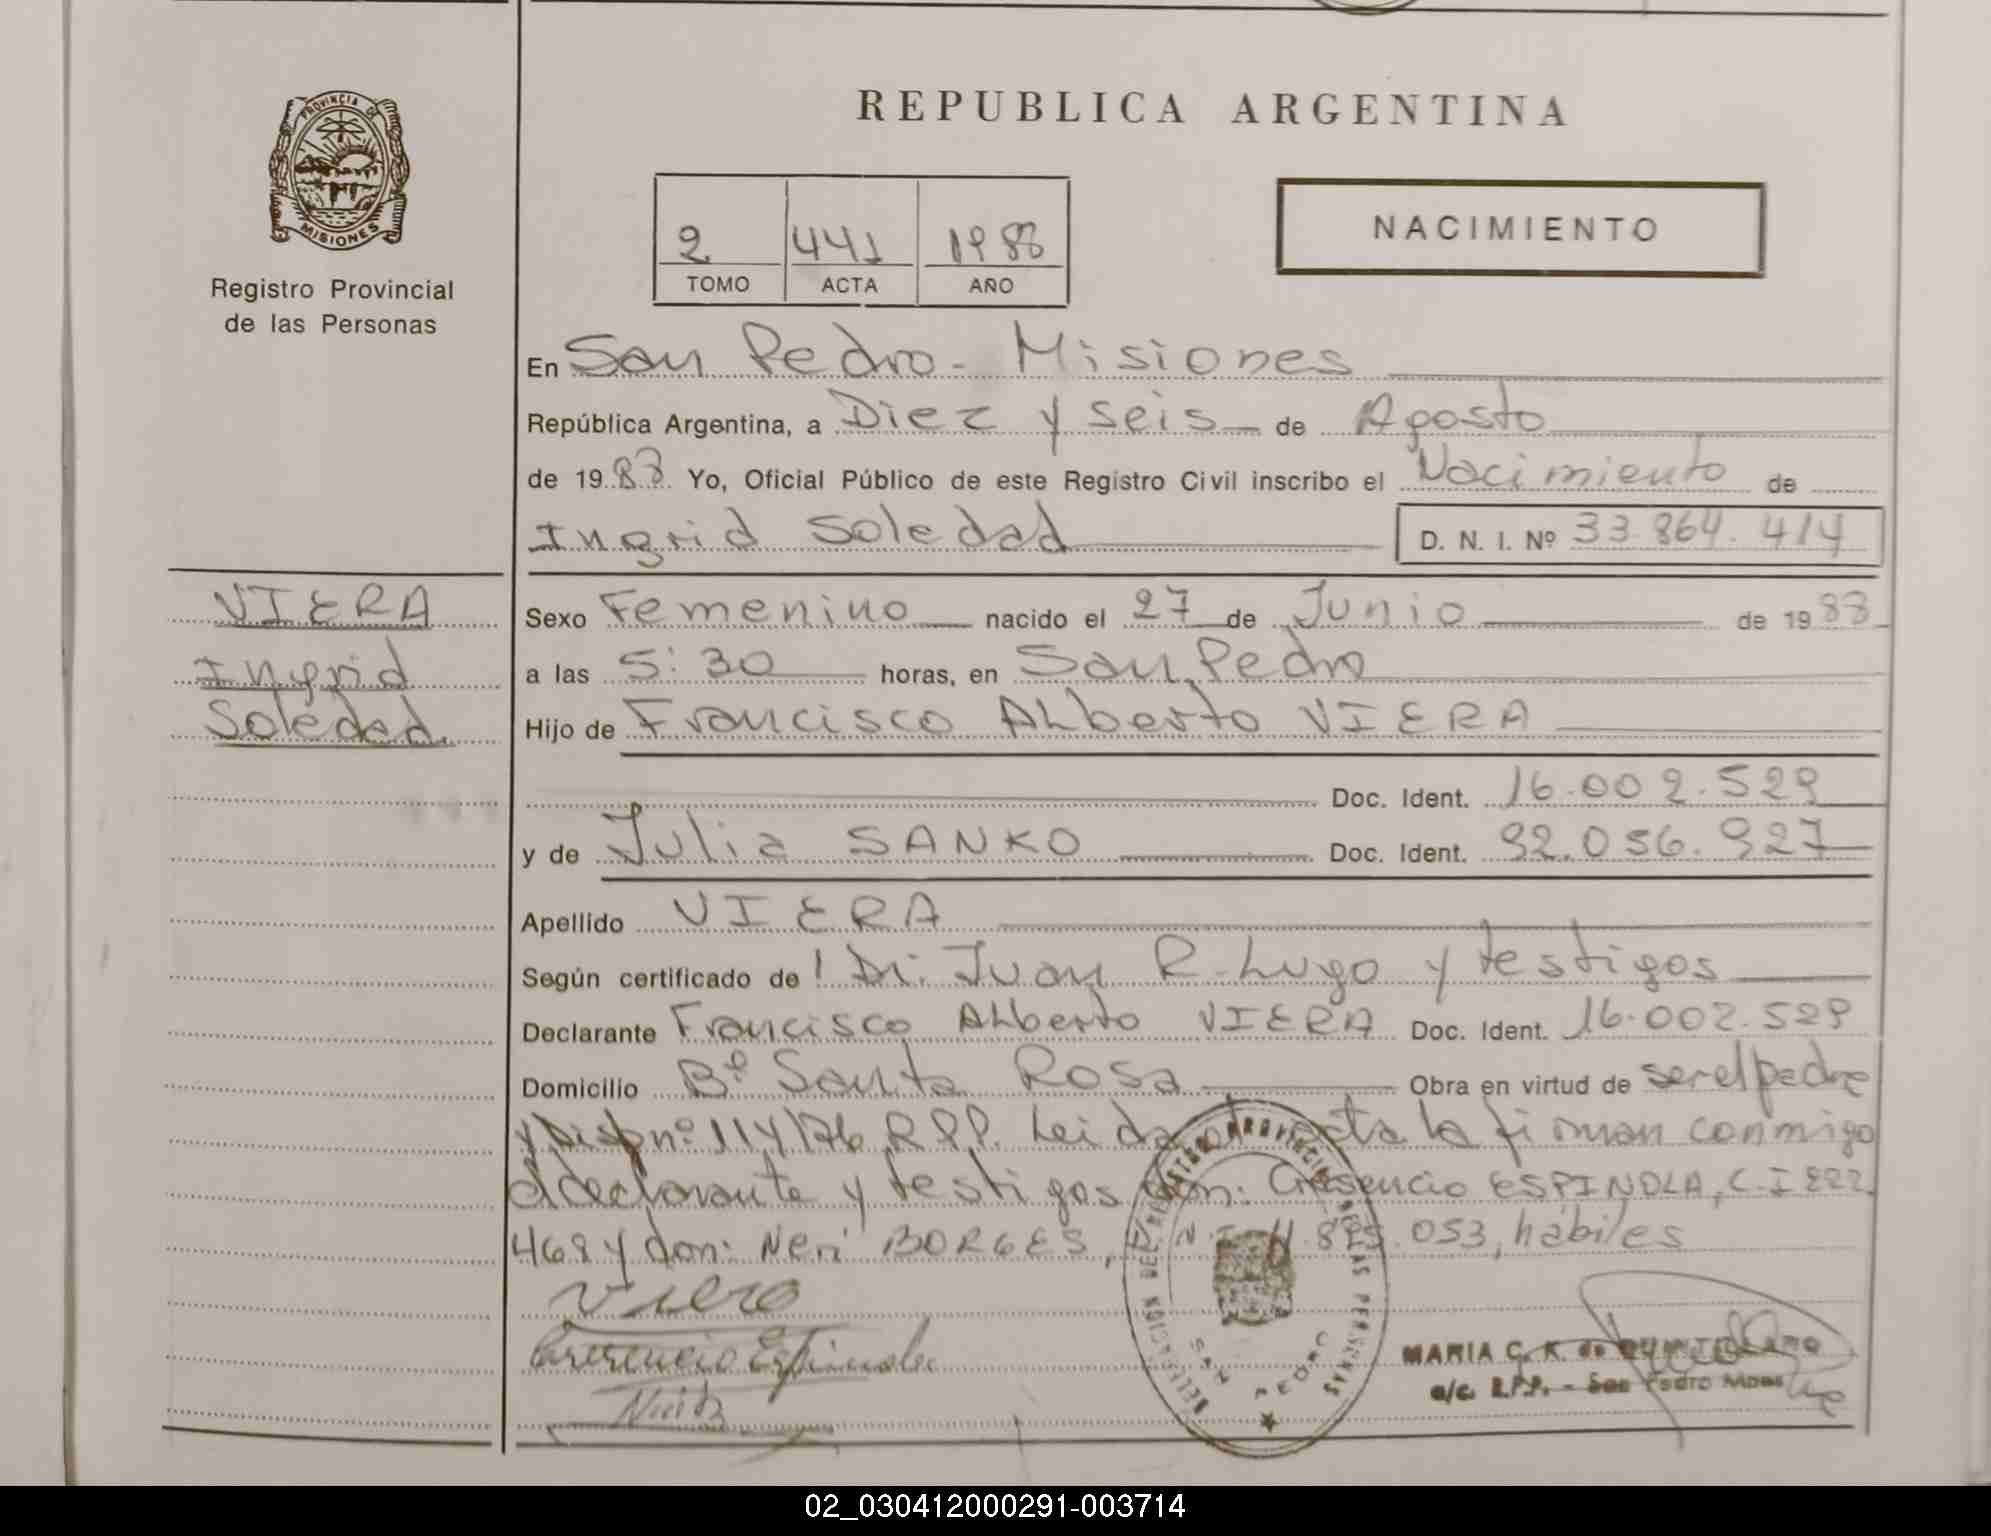 REPUBLICA ARGENTINA
PROVINCIA DE
MISIONES
Registro Provincial
de las Personas
2 441 1988
TOMO ACTA AÑO
NACIMIENTO
En San Pedro - Misiones
República Argentina, a Diez y seis de Agosto
de 1988 Yo, Oficial Público de este Registro Civil inscribo el Nacimiento de
Ingrid Soledad D. N. I. Nº 33.864.414
VIERA
Ingrid
Soledad
Sexo Femenino nacido el 27 de Junio de 1988
a las 5:30 horas, en San Pedro
Hijo de Francisco Alberto VIERA
Doc. Ident. 16.002.529
y de Julia SANKO Doc. Ident. 92.056.927
Apellido VIERA
Según certificado de Dr. Juan R. Lugo y testigos
Declarante Francisco Alberto VIERA Doc. Ident. 16.002.529
Domicilio Bº Santa Rosa Obra en virtud de ser el padre
y Disp nº 114/76 R.P.P. Leida el acta la firman conmigo
el declarante y testigos don: Cresencio ESPINOLA, C.I 822.
468 y don: Neri BORGES, 053, hábiles
Viera
Cresencio Espinola
MARIA C. K. de
a/c. R.P.P. - San Pedro Mnes
02_030412000291-003714